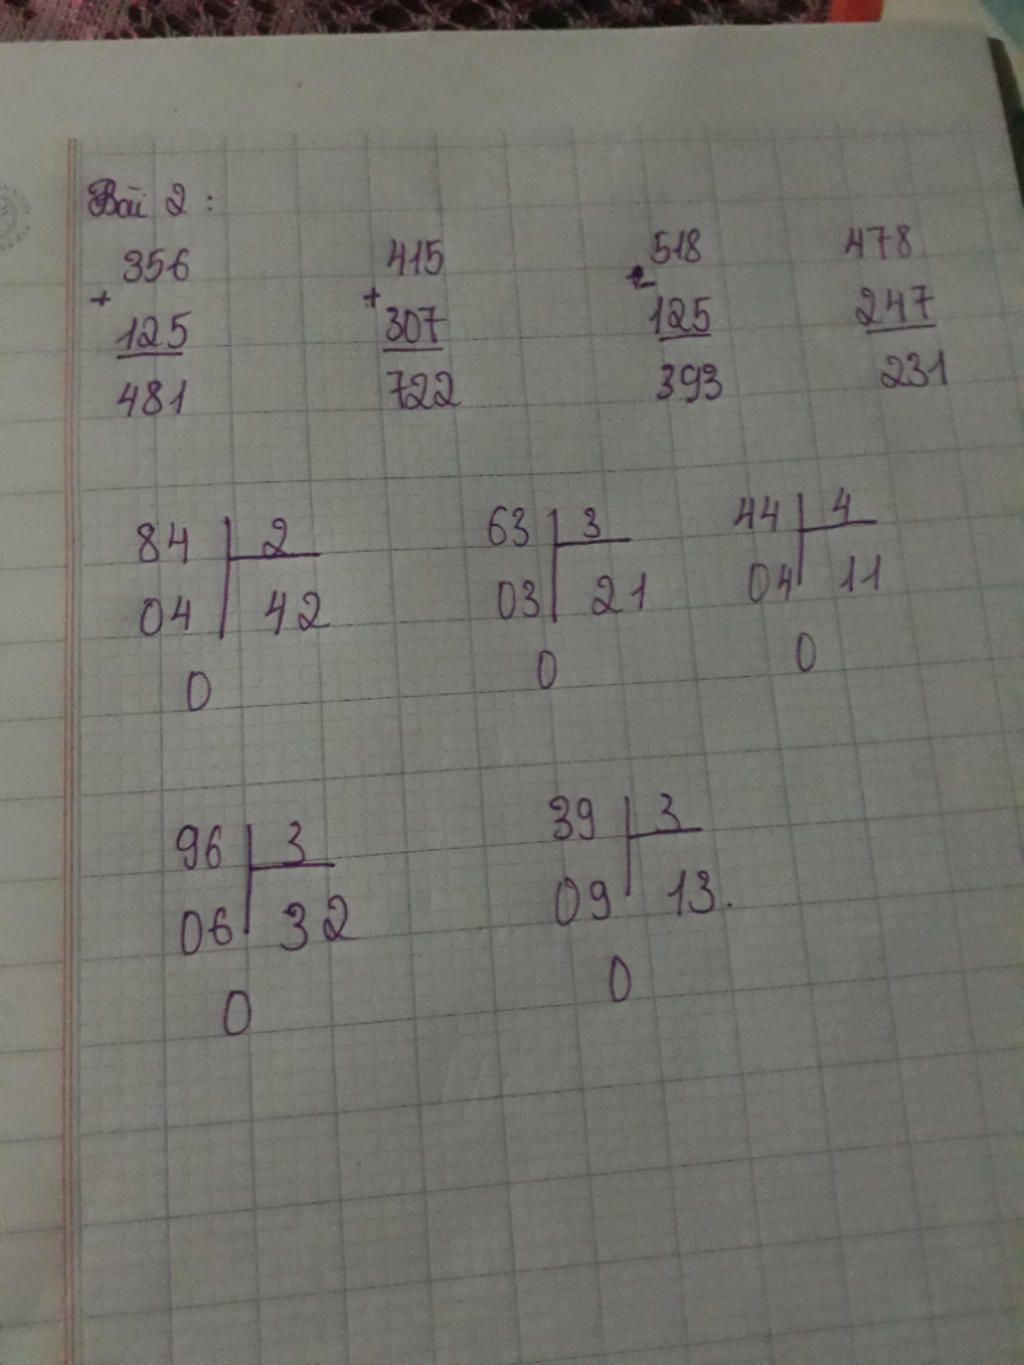 Bài 2 :
356 415 518 478
+ + -
125 307 125 247
481 722 393 231
84 2 63 3 44 4
04 42 03 21 04 11
0 0 0
96 3 39 3
06 32 09 13.
0 0